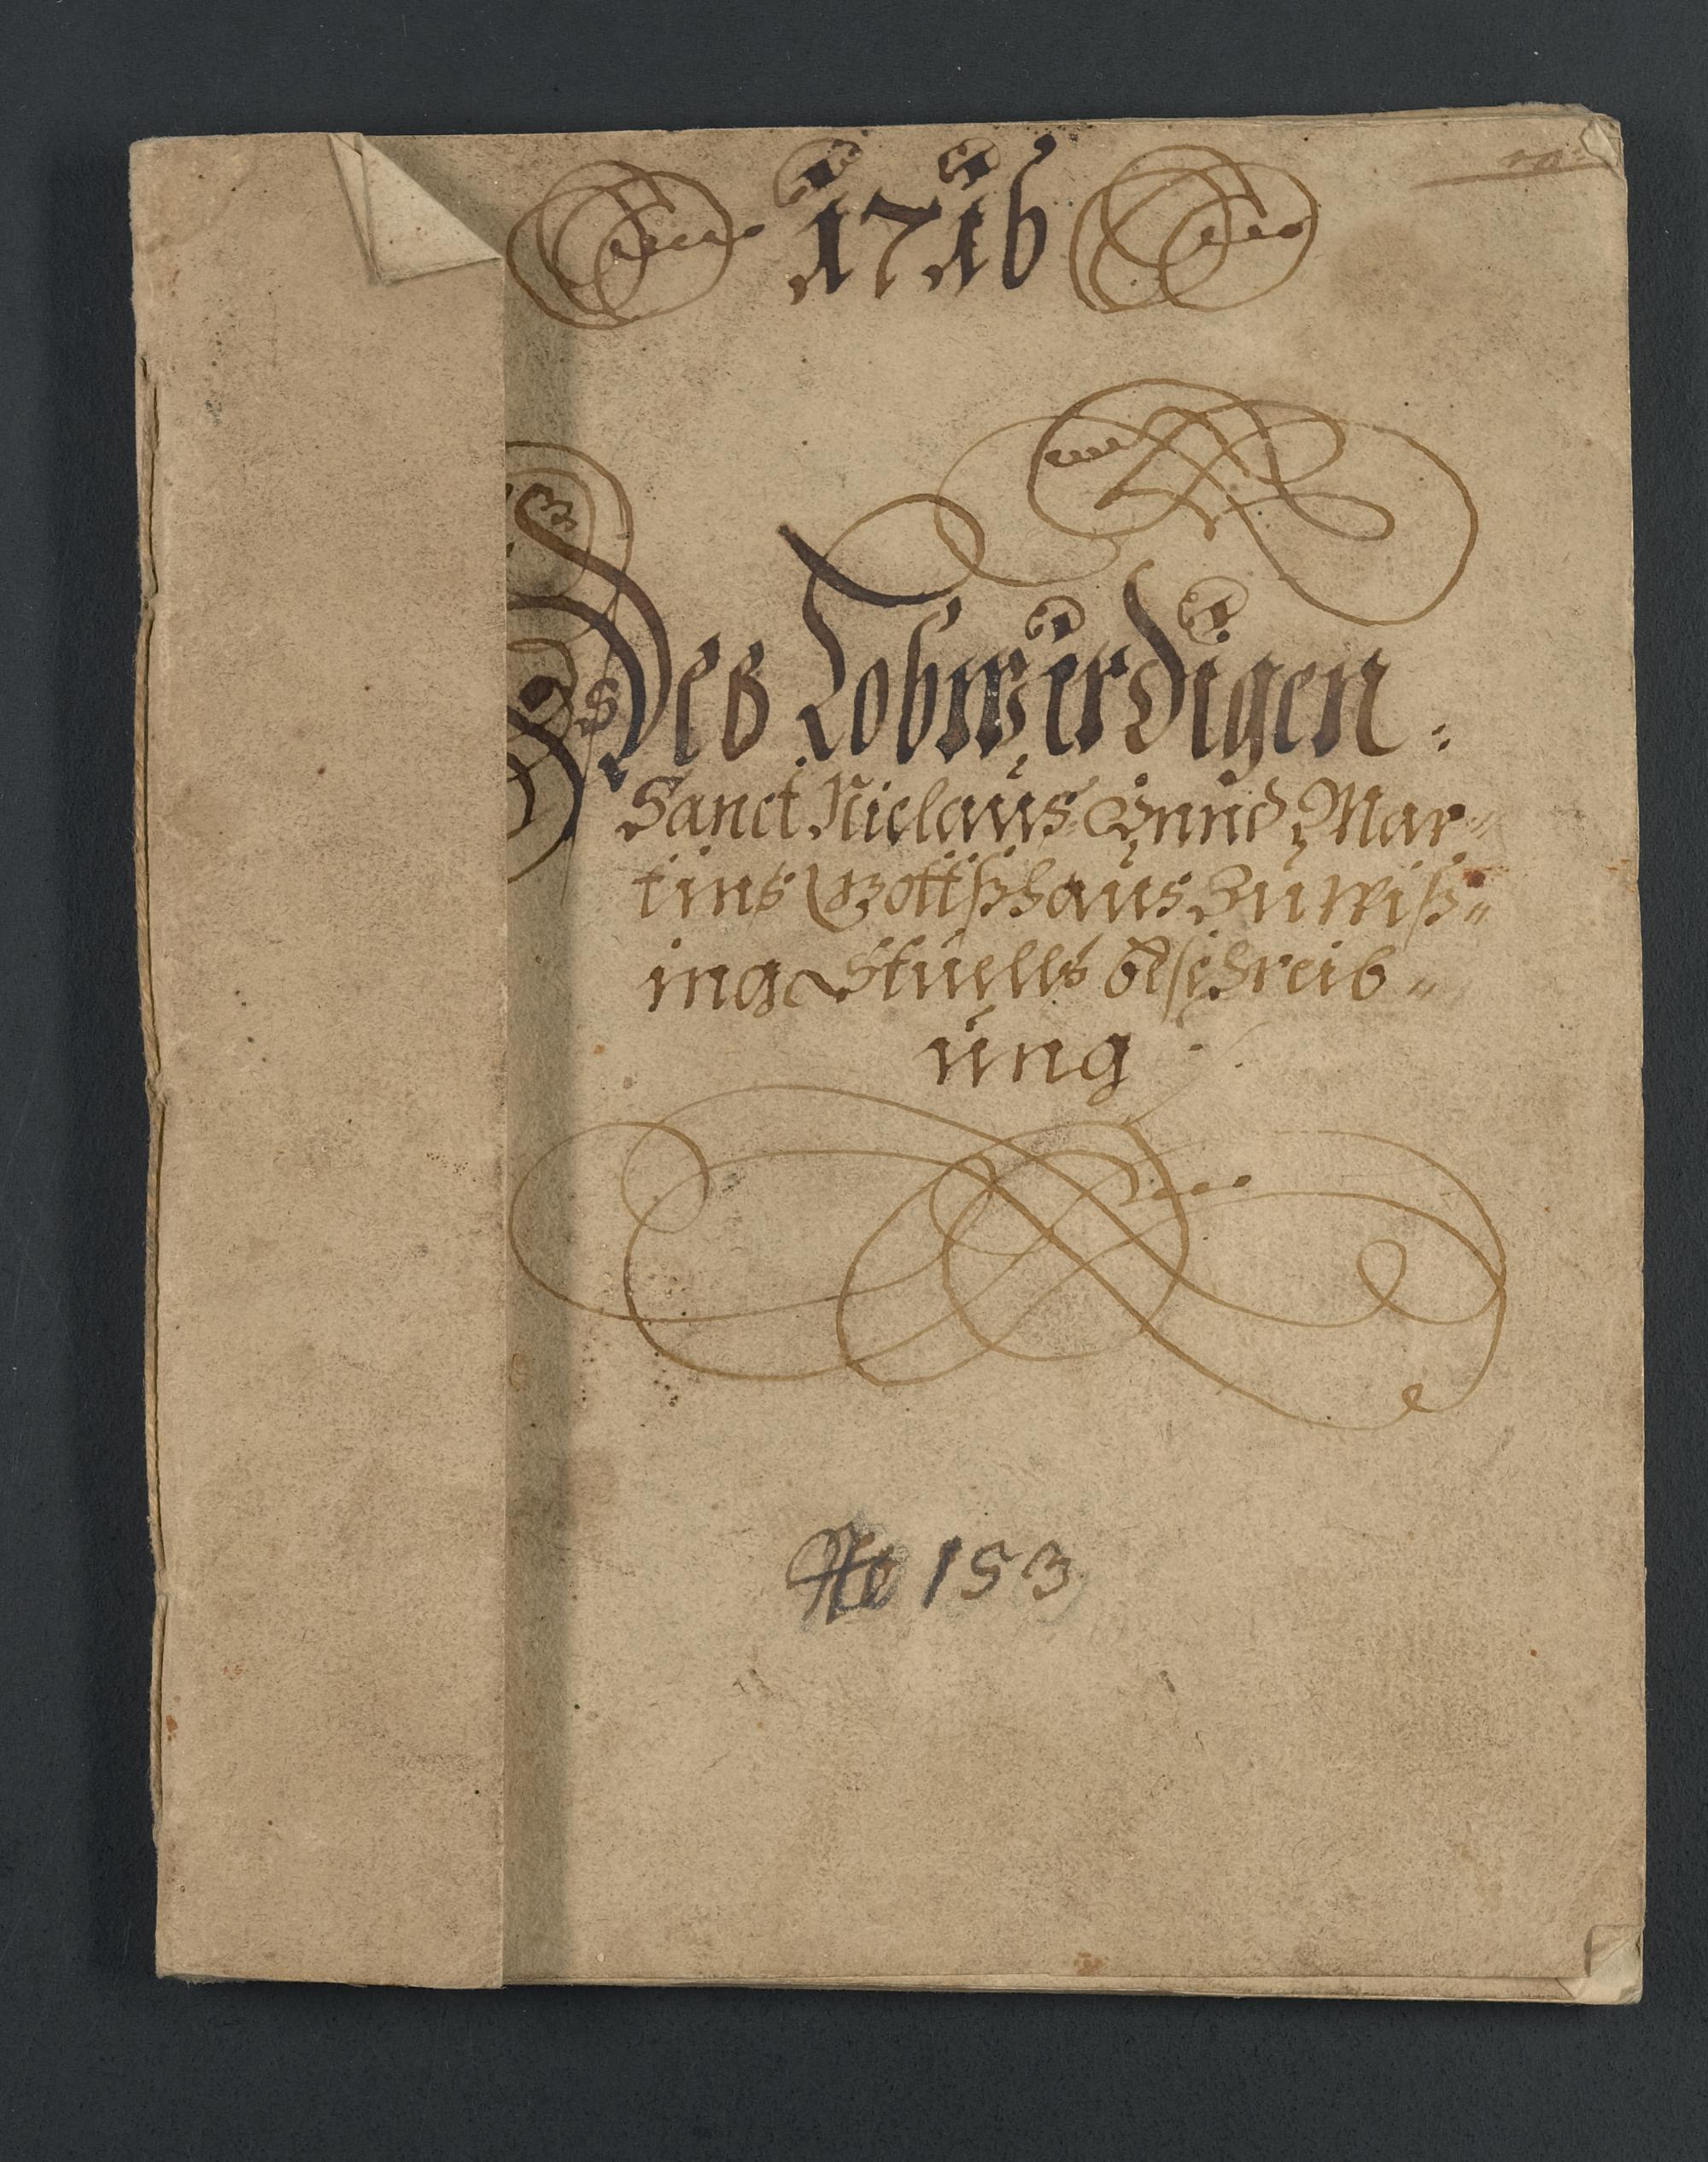 1716
Des Lobwirdigen :
Sanct Niclauß Vnnd Mar=
tins Gottßhaus Zu Wiß=
ing Stuells beschreib=
ung
No 153